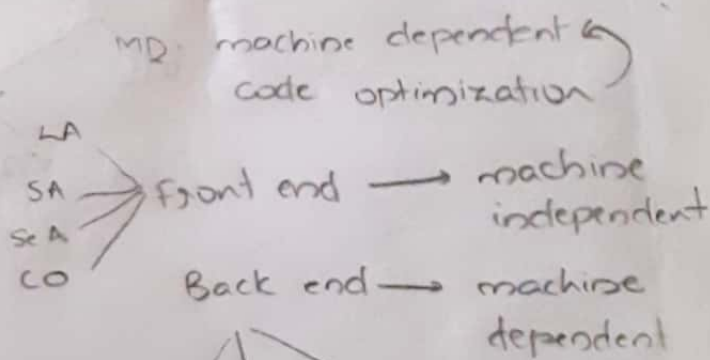 MD: machine dependent
code optimization
LA
SA → front end → machine
independent
SeA
CO
Back end → machine
dependent